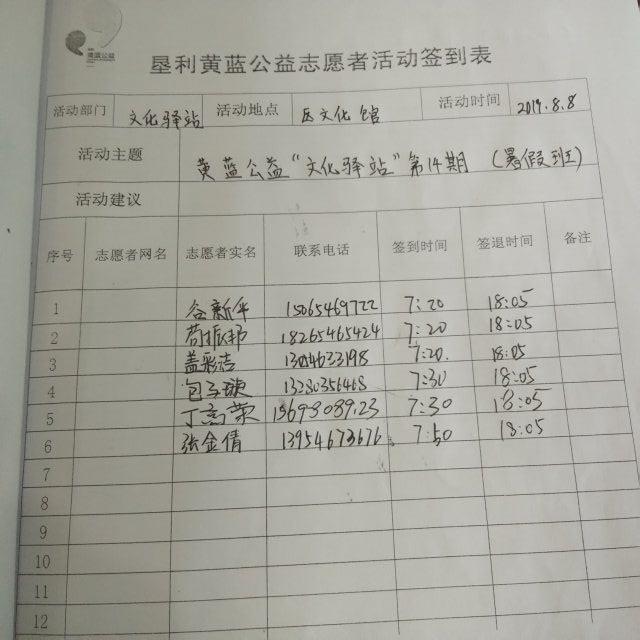 黄蓝公益
垦利黄蓝公益志愿者活动签到表
活动部门 文化驿站 活动地点 区文化馆 活动时间 2019.8.8
活动主题 黄蓝公益“文化驿站”第14期 (暑假班)
活动建议
序号 志愿者网名 志愿者实名 联系电话 签到时间 签退时间 备注
1 谷新平 15065469722 7:20 18:05
2 苟振邦 18265465424 7:20 18:05
3 盖彩洁 7:20. 18:05
4 7:30 18:05
5 丁高荣 7:30 18:05
6 张金倩 13954673676 7:50 18:05
7
8
9
10
11
12